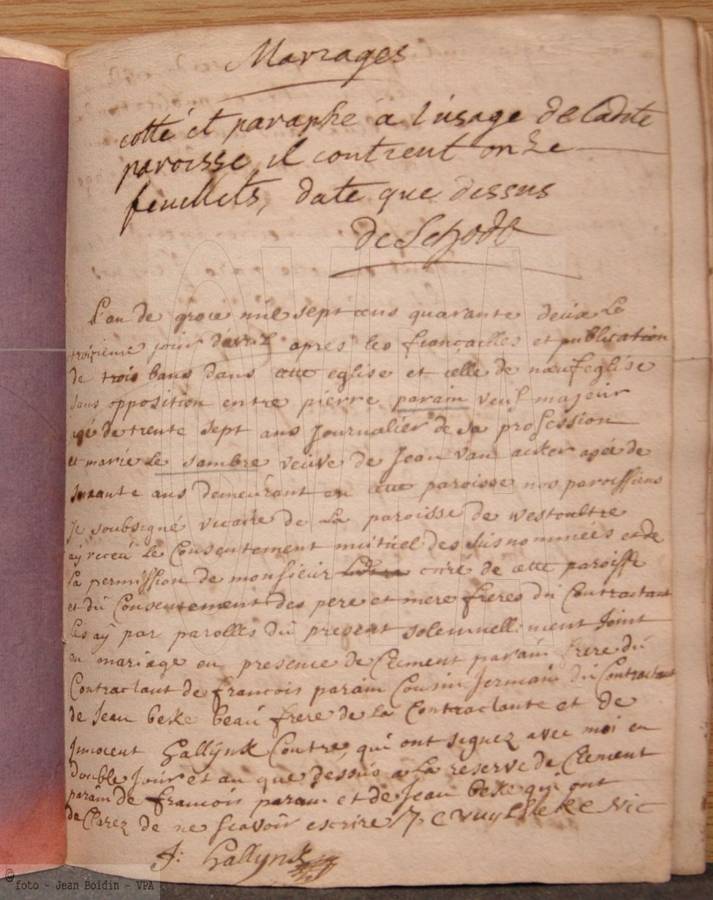 Mariages
cotté et paraphé a l'usage de ladite
paroisse il contient onze
feuillets, date que dessus
de Schodt
L'an de grace mil sept cens quarante deux le
troisieme jour d'avril apres les fiançailles et publication
de trois bans dans cette eglise et celle de neufeglise
sans opposition entre pierre parain veuf majeur
agé de trente sept ans Journalier de sa profession
et marie le sambre veuve de Jean van acker agée de
soixante ans demeurant en cette paroisse nos paroissiens
Je soubsigné vicaire de La paroisse de westoultre
ay receu Le Consentement mutuel des susnommées et de
la permission de monsieur curé de cette paroisse
et du Consentement des pere et mere freres du Contractant
les ay par parolles du present solemnellement Joint
en mariage en presence de Clement parain frere du
Contractant de francois parain Cousin Jermain du Contractant
de Jean beke beau frere de la Contractante et de
Innocent Gallynk Contre, qui ont signez avec moi en
double Jour et an que dessus a La reserve de Clement
parain de francois parain et de Jean beke qui ont
declarez de ne scavoir escrire
J: Gallynk
© foto - Jean Boidin - VPA